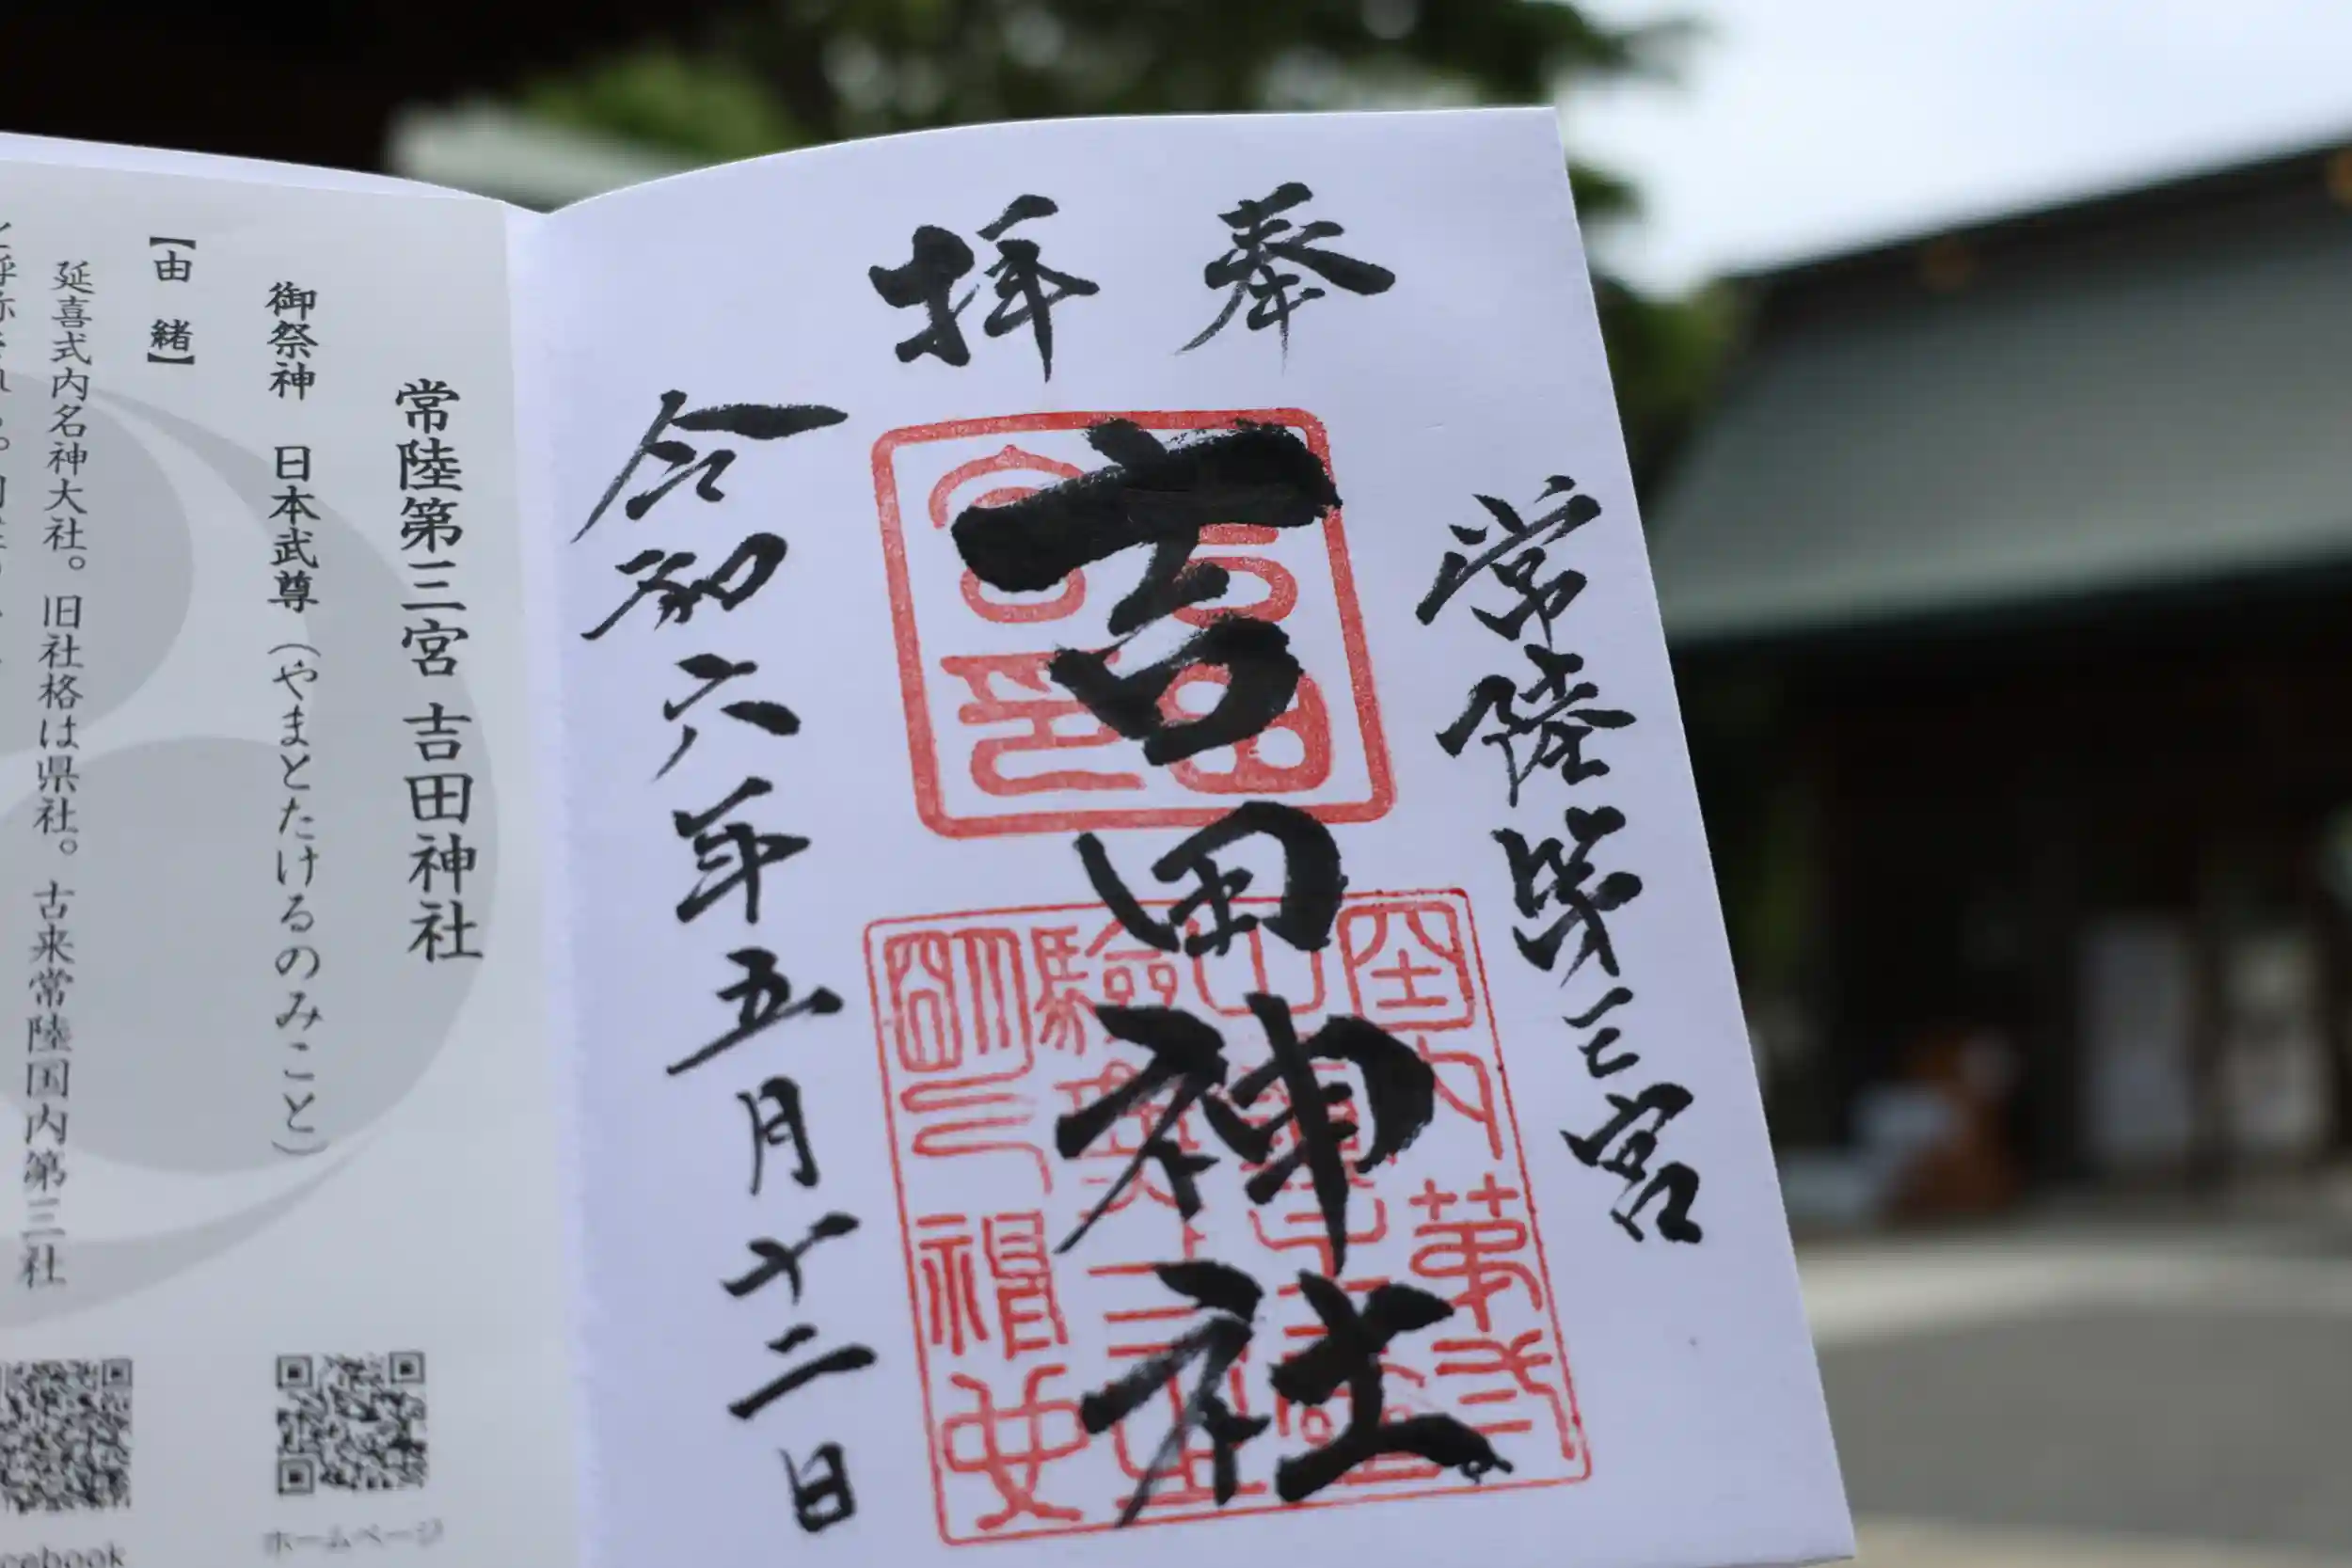 奉拝
常陸第三宮
吉田神社
令和六年五月十二日
常陸第三宮 吉田神社
御祭神 日本武尊（やまとたけるのみこと）
【由 緒】
延喜式内名神大社。旧社格は県社。古来常陸国内第三社
ホームページ
cebook